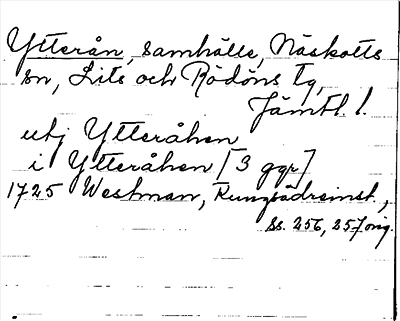 Ytterån, samhälle, Näskotts
sn, Lits och Rödöns tg,
Jämtl. l.
utj Ytteråhen
i Ytteråhen [3 ggr]
1725 Westman,
ss. 256, 257 orig.